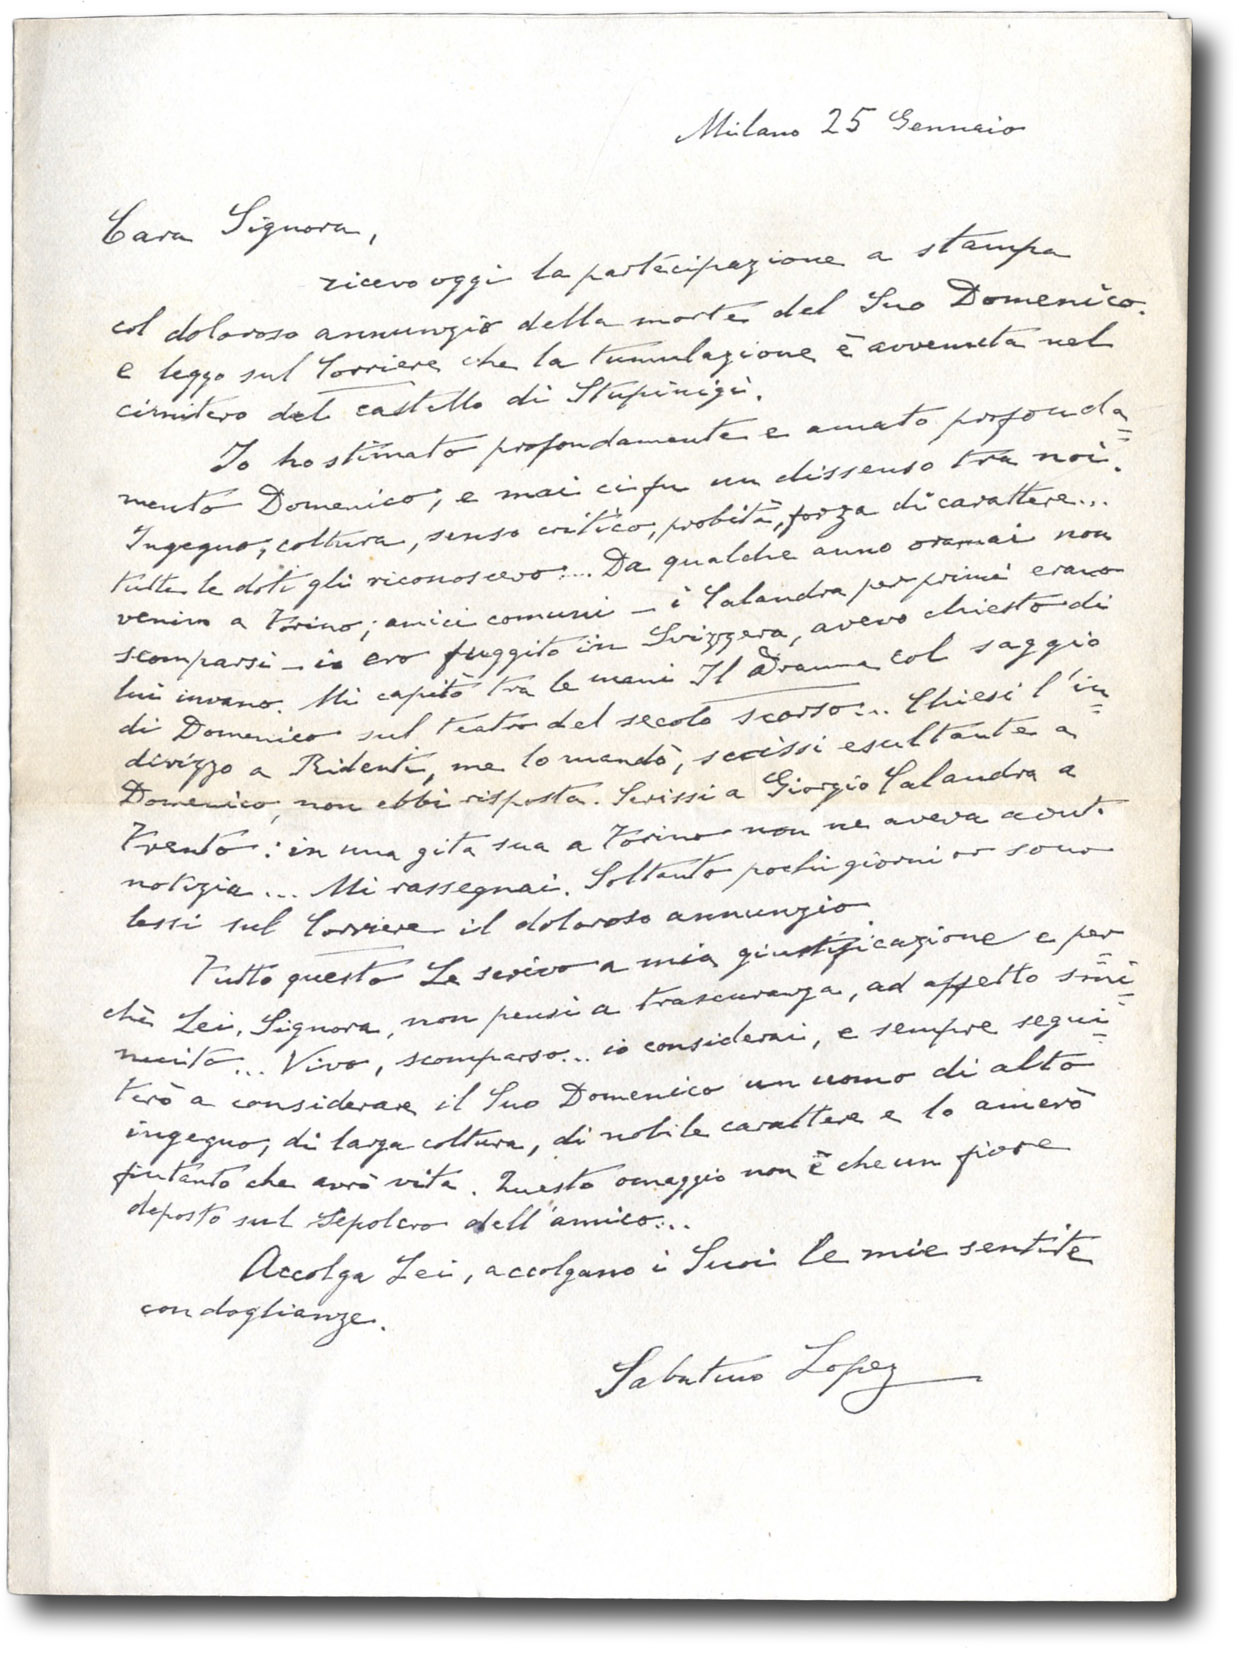 Milano 25 Gennaio
Cara Signora,
ricevo oggi la partecipazione a stampa
col doloroso annunzio della morte del Suo Domenico.
e leggo sul Corriere che la tumulazione è avvenuta nel
cimitero del castello di Stupinigi.
Io ho stimato profondamente e amato profonda=
mente Domenico, e mai ci fu un dissenso tra noi.
Ingegno, coltura, senso critico, probità, forza di carattere...
tutte le doti gli riconoscevo.... Da qualche anno oramai non
venivo a Torino; amici comuni – i Calandra per primi erano
scomparsi – io ero fuggito in Svizzera, avevo chiesto di
lui invano. Mi capitò tra le mani Il Dramma col saggio
di Domenico sul teatro del secolo scorso... Chiesi l'in=
dirizzo a Ridenti, me lo mandò, scrissi esultante a
Domenico, non ebbi risposta. Scrissi a Giorgio Calandra a
Trento: in una gita sua a Torino non ne aveva avut.
notizia... Mi rassegnai. Soltanto pochi giorni or sono
lessi sul Corriere il doloroso annunzio.
Tutto questo Le scrivo a mia giustificazione e per
chè Lei, Signora, non pensi a trascuranza, ad affetto smi=
nuito... Vivo, scomparso... io considerai, e sempre segui=
terò a considerare il Suo Domenico un uomo di alto
ingegno, di larga coltura, di nobile carattere e lo amerò
fintanto che avrò vita. Questo omaggio non è che un fiore
deposto sul sepolcro dell'amico...
Accolga Lei, accolgano i Suoi le mie sentite
condoglianze.
Sabatino Lopez